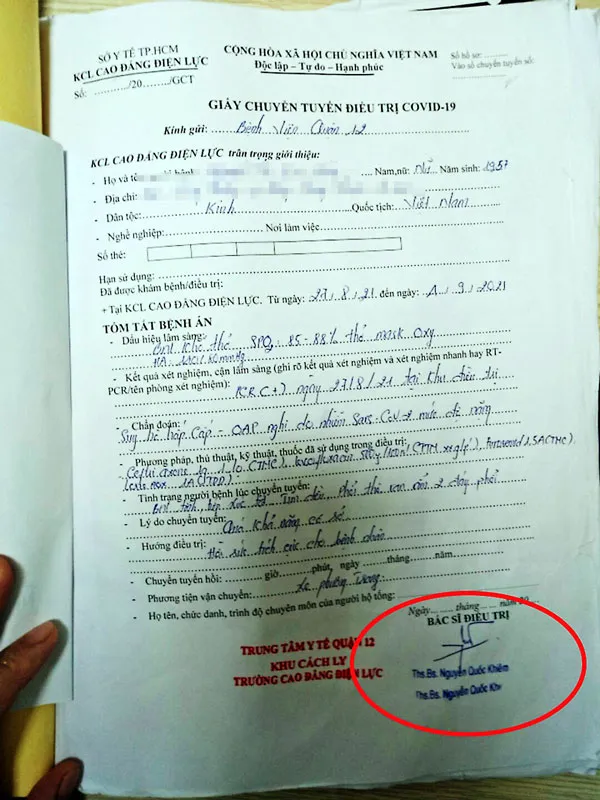 SỞ Y TẾ TP.HCM
KCL CAO ĐẲNG ĐIỆN LỰC
Số: ........../20......../GCT
CỘNG HÒA XÃ HỘI CHỦ NGHĨA VIỆT NAM
Độc lập – Tự do – Hạnh phúc
Số hồ sơ: ..........
Vào sổ chuyển tuyến số:
GIẤY CHUYỂN TUYẾN ĐIỀU TRỊ COVID-19
Kính gửi: Bệnh viện Quận 12
KCL CAO ĐẲNG ĐIỆN LỰC trân trọng giới thiệu:
- Họ và tên Nam,nữ: Nữ Năm sinh: 1957
- Địa chỉ:
- Dân tộc: Kinh Quốc tịch: Việt Nam
- Nghề nghiệp: Nơi làm việc
Số thẻ:
Hạn sử dụng:
Đã được khám bệnh/điều trị:
+ Tại KCL CAO ĐẲNG ĐIỆN LỰC. Từ ngày: 27/8/21 đến ngày: 1/9/2021
TÓM TẮT BỆNH ÁN
- Dấu hiệu lâm sàng:
khó thở SPO2: 85-88% thở mask oxy
- Kết quả xét nghiệm, cận lâm sàng (ghi rõ kết quả xét nghiệm và xét nghiệm nhanh hay RT-
PCR/tên phòng xét nghiệm): PCR (+) ngày 27/8/21 tại khu điều trị
- Chẩn đoán:
Suy hô hấp cấp - nghi do nhiễm Sars CoV-2 mức độ nặng
- Phương pháp, thủ thuật, kỹ thuật, thuốc đã sử dụng trong điều trị:
- Tình trạng người bệnh lúc chuyển tuyến:
tỉnh, tiếp xúc tốt, Tim đều, Phổi thô ran ẩm 2 đáy phổi
- Lý do chuyển tuyến: Quá khả năng cơ sở
- Hướng điều trị: Hồi sức tích cực cho bệnh nhân
- Chuyển tuyến hồi: giờ phút, ngày tháng năm
- Phương tiện vận chuyển: Xe Phương Trang
- Họ tên, chức danh, trình độ chuyên môn của người hộ tống:
Ngày tháng năm 20
BÁC SĨ ĐIỀU TRỊ
TRUNG TÂM Y TẾ QUẬN 12
KHU CÁCH LY
TRƯỜNG CAO ĐẲNG ĐIỆN LỰC
Ths.Bs. Nguyễn Quốc Khiêm
Ths.Bs. Nguyễn Quốc Khi